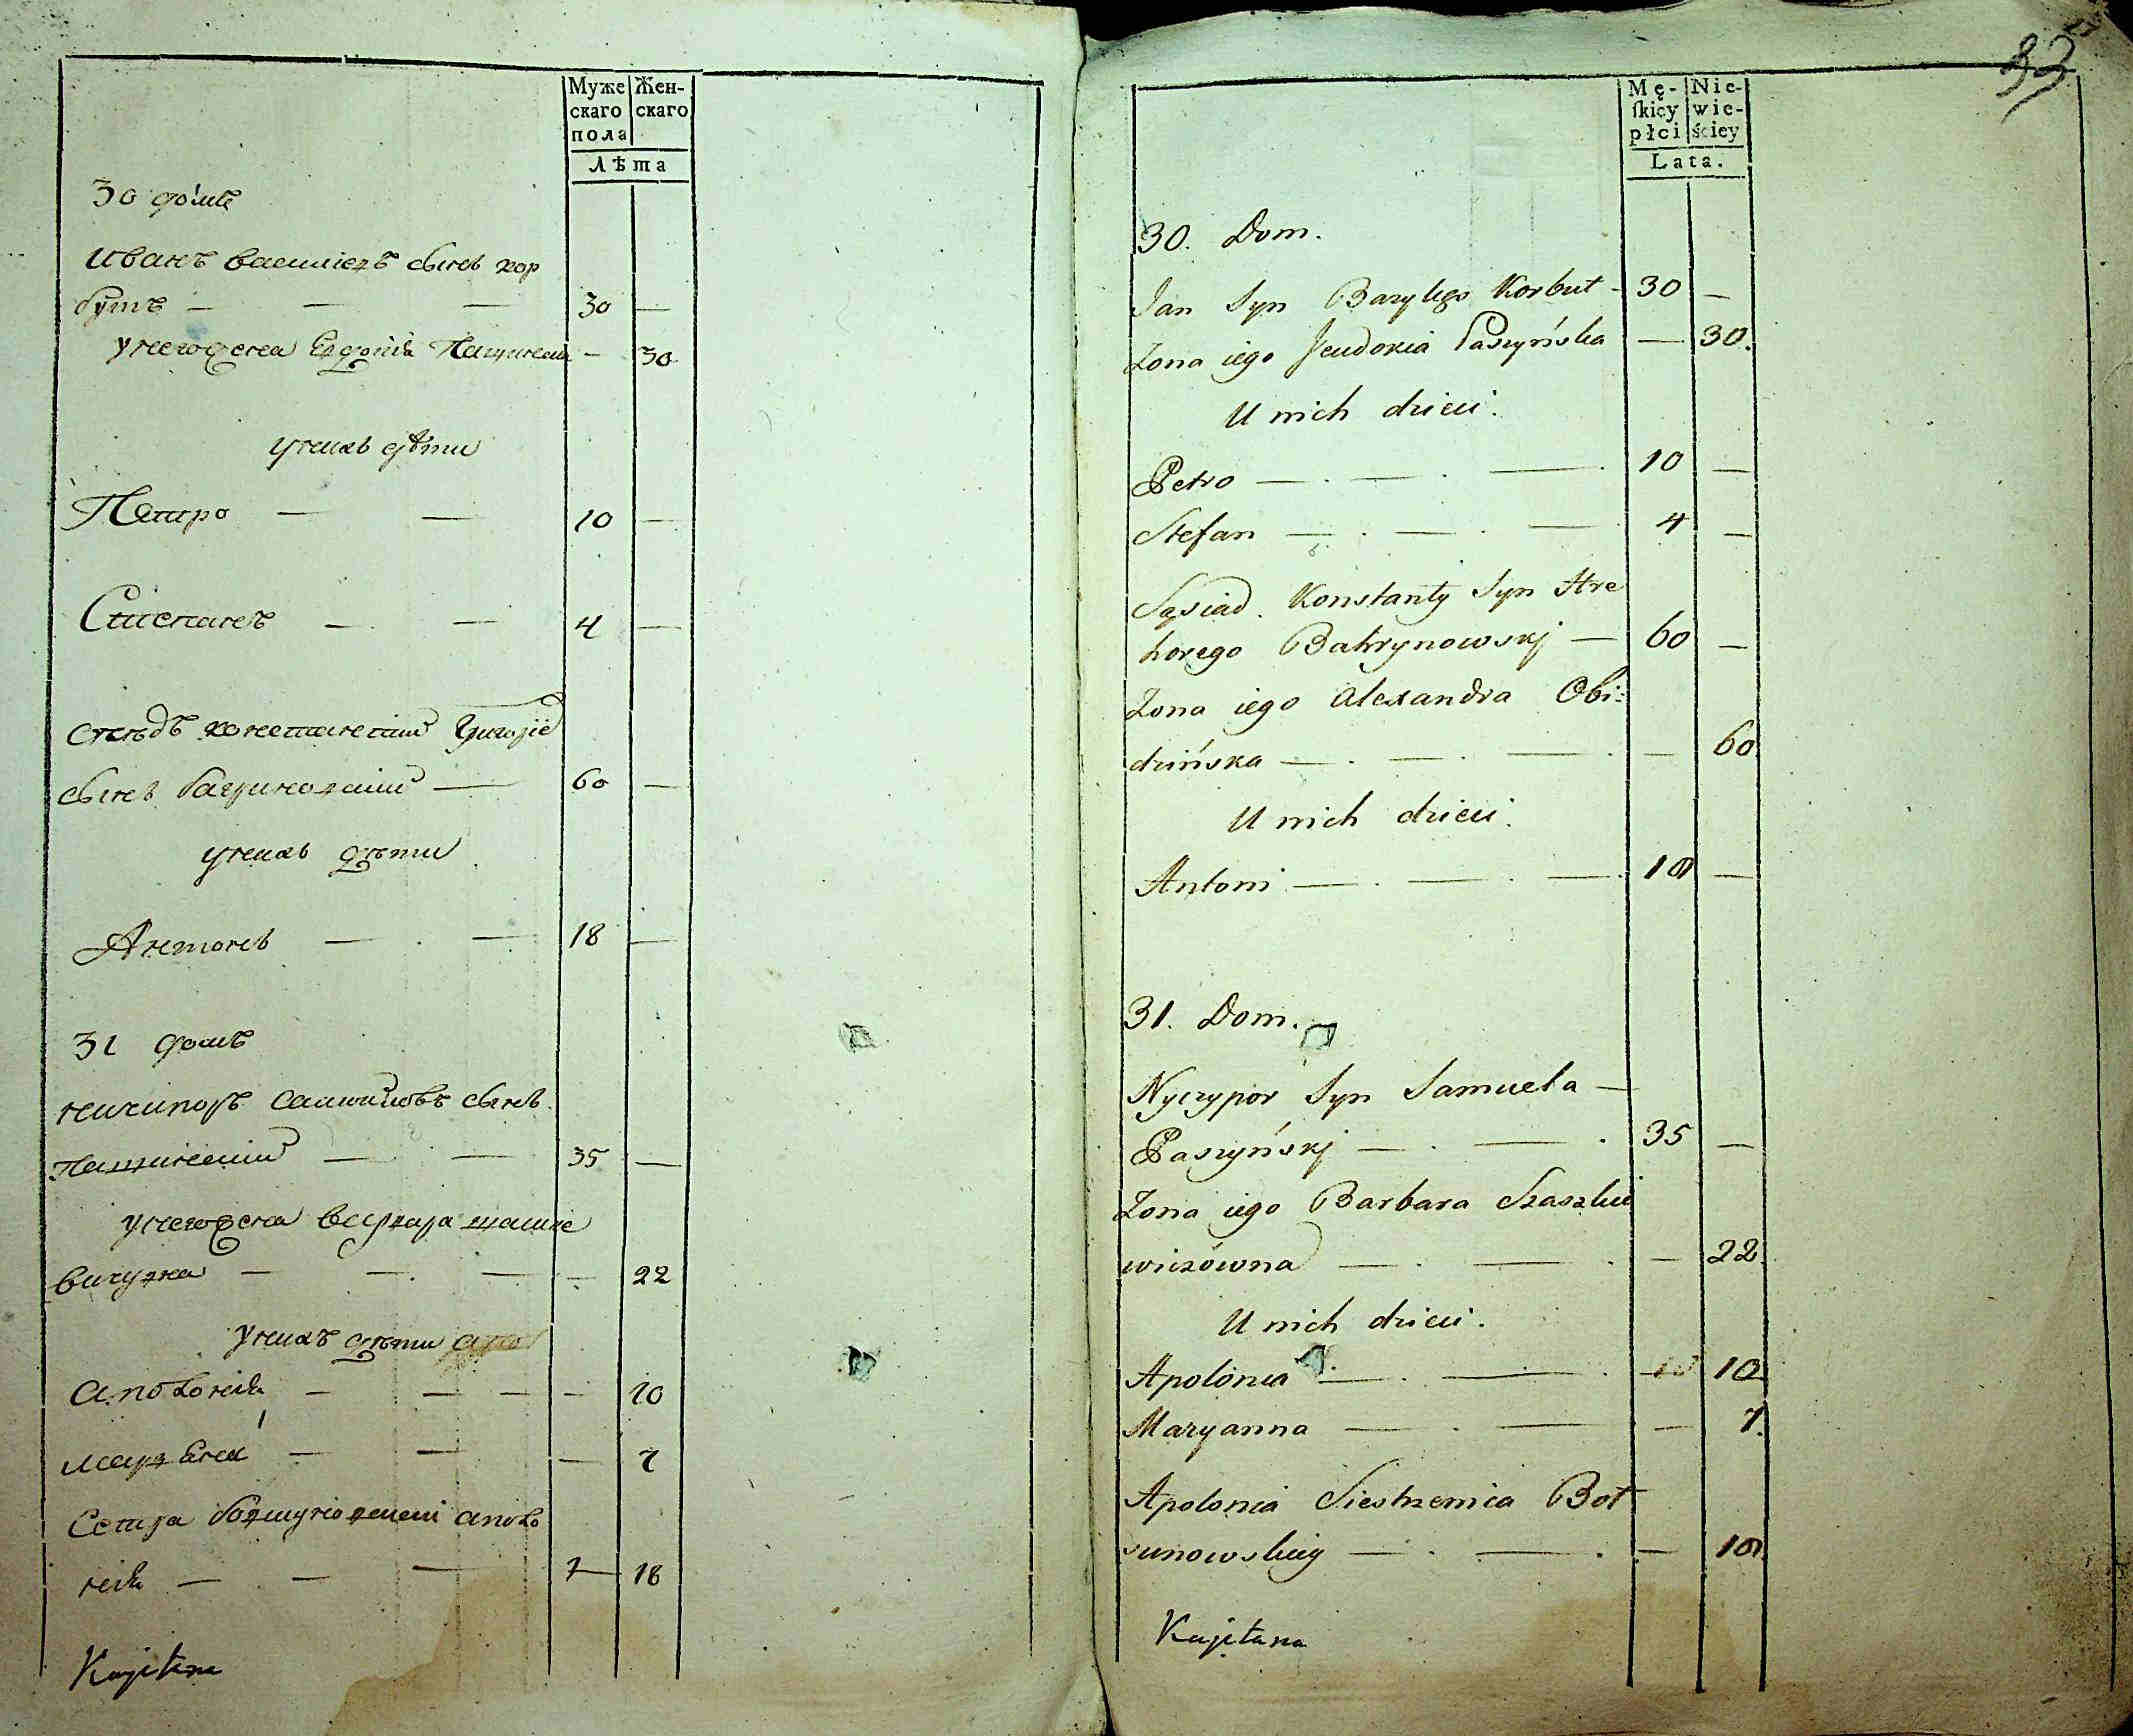 Муже
скаго
пола
Жен-
скаго
Лѣта
30 домъ
Иванъ Василіевъ сынъ Кор
бутъ — — — 30 —
унего жена Евдокія Пашинская — 30
унихъ дѣти
Петро — — 10 —
Степанъ — — 4 —
Сусѣдъ Константий Григоріе
сынъ — 60 —
унихъ дѣти
Антонъ — — 18 —
31 домъ
Ничипоръ Самойловъ сынъ
Пашинский — — 35 —
унего жена Варвара Шашке
вичувна — — — — 22
унихъ дѣти
Аполонія — — — — 10
Маріѧна — — — 7
Сестра Аполо
нія — — — 18
Kajitana
33
Mę-
ſkiey
płci
Nie-
wie-
ściey
Lata.
30. Dom.
Jan Syn Bazylego Korbut - 30 —
Zona iego Jeudokia Paszyńska — 30.
U nich dzieci.
Petro — . — . — . 10 —
Stefan — . — . — . 4 —
Sąsiad. Konstanty Syn Hre
horego Bahrynowskj — 60 —
Zona iego Alexandra Obi:
dzińska — . — . — . — 60
U nich dzieci.
Antoni — . — . — . 18 —
31. Dom.
Nyczypor Syn Samuela —
Paszyńskj — . — . 35 —
Zona iego Barbara Szaszkie
wiczówna — . — . — 22.
U nich dzieci.
Apolonia — . — . 10
Maryanna — . — — 7.
Apolonia Siestrzenica Boł
sunowskiey — . — . — 18.
Kajitana